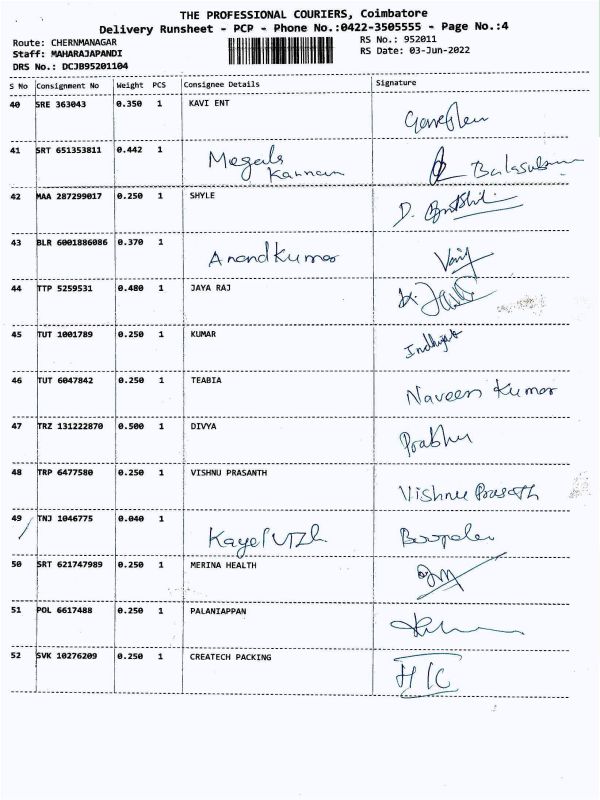 THE PROFESSIONAL COURIERS, Coimbatore
Delivery Runsheet - PCP - Phone No.:0422-3505555 - Page No.:4
Route: CHERNMANAGAR RS No.: 952011
Staff: MAHARAJAPANDI RS Date: 03-Jun-2022
DRS No.: DCJB95201104
S No Consignment No Weight PCS Consignee Details Signature
40 SRE 363043 0.350 1 KAVI ENT
41 SRT 651353811 0.442 1 Megala Kannan
42 MAA 287299017 0.250 1 SHYLE
43 BLR 6001886086 0.370 1 Anand Kumar
44 TTP 5259531 0.480 1 JAYA RAJ
45 TUT 1001789 0.250 1 KUMAR
46 TUT 6047842 0.250 1 TEABIA Naveen Kumar
47 TRZ 131222870 0.500 1 DIVYA Prabhu
48 TRP 6477580 0.250 1 VISHNU PRASANTH Vishnu Prasath
49 TNJ 1046775 0.040 1
50 SRT 621747989 0.250 1 MERINA HEALTH
51 POL 6617488 0.250 1 PALANIAPPAN
52 SVK 10276209 0.250 1 CREATECH PACKING